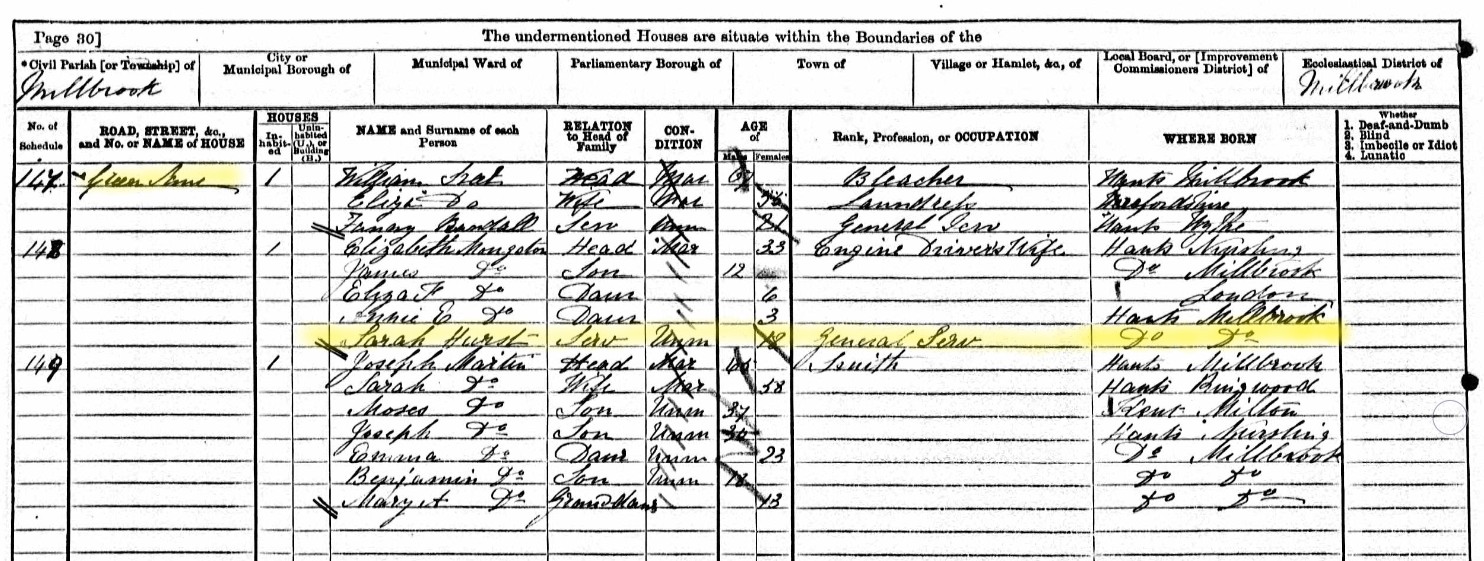 Page 30] The undermentioned Houses are situate within the Boundaries of the
*Civil Parish [or Township] of City or Municipal Borough of Municipal Ward of Parliamentary Borough of Town of Village or Hamlet, &c., of Local Board, or [Improvement Commissioners District] of Ecclesiastical District of
Millbrook Millbrook
No. of Schedule ROAD, STREET, &c., and No. or NAME of HOUSE HOUSES Inhabited Uninhabited (U.), or Building (B.) NAME and Surname of each Person RELATION to Head of Family CONDITION AGE of Males Females Rank, Profession, or OCCUPATION WHERE BORN Whether 1. Deaf-and-Dumb 2. Blind 3. Imbecile or Idiot 4. Lunatic
147 Green 1 William Head Mar Bleacher Hants Millbrook
Eliza Do Wife Mar Laundress
Fanny Randall Serv Unm 21 General Serv Hants Hythe
148 1 Elizabeth Mungaton Head Mar 33 Engine Drivers Wife Hants Nursling
James Do Son 12 Do Millbrook
Eliza F Do Daur 6 London
Annie E Do Daur 3 Hants Millbrook
Sarah Hurst Serv Unm 18 General Serv Do Do
149 1 Joseph Martin Head Mar Smith Hants Millbrook
Sarah Do Wife Mar 58 Hants Ringwood
Moses Do Son Unm 37 Kent Milton
Joseph Do Son Unm Hants Nursling
Emma Do Daur Unm 23 Do Millbrook
Benjamin Do Son Unm Do Do
Mary A Do 13 Do Do